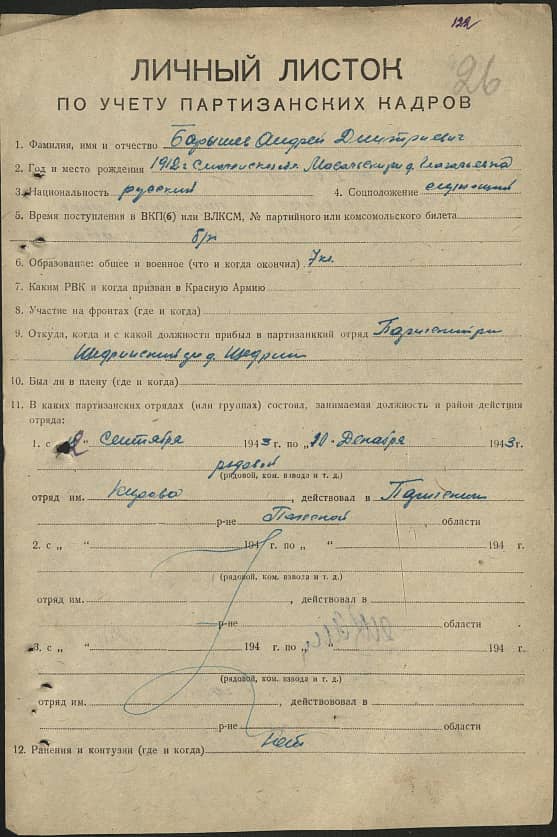 122
26
ЛИЧНЫЙ ЛИСТОК
ПО УЧЕТУ ПАРТИЗАНСКИХ КАДРОВ
1. Фамилия, имя и отчество Барышев Андрей Дмитриевич
2. Год и место рождения 1912 г Смоленской обл.
3. Национальность русский 4. Соцположение служащий
5. Время поступления в ВКП(б) или ВЛКСМ, № партийного или комсомольского билета
б/п
6. Образование: общее и военное (что и когда окончил) 7 кл.
7. Каким РВК и когда призван в Красную Армию
8. Участие на фронтах (где и когда)
9. Откуда, когда и с какой должности прибыл в партизанккий отряд
Щедринский д. Щедрин
10. Был ли в плену (где и когда)
11. В каких партизанских отрядах (или группах) состоял, занимаемая должность и район действия
отряда:
1. с „ “ Сентября 1943 г. по „20“ Декабря 1943 г.
рядовой
(рядовой, ком. взвода и т. д.)
отряд им. Кирова, действовал в
р-не Полесской области
2. с „ “ 194 г. по „ “ 194 г.
(рядовой, ком. взвода и т. д.)
отряд им. , действовал в
р-не области
3. с „ “ 194 г. по „ “ 194 г.
(рядовой, ком. взвода и т. д.)
отряд им. , действововал в
р-не области
12. Ранения и контузии (где и когда) нет